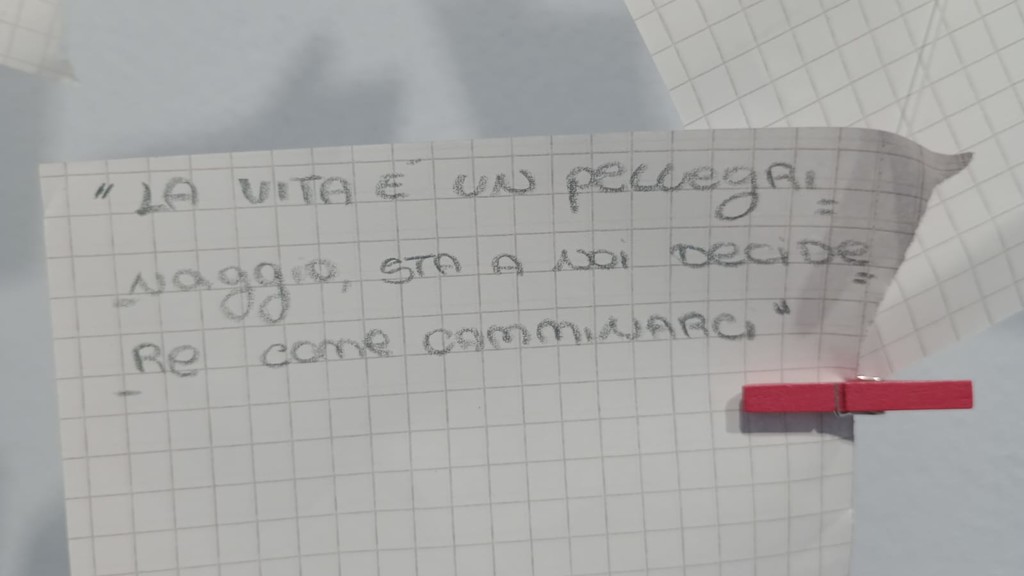 "LA VITA È UN PELLEGRI=
NAGGIO, STA A NOI DECIDE=
RE COME CAMMINARCI"